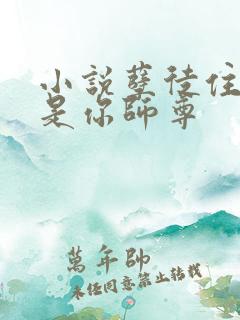 小說孽徒住
是你師尊
萬年帥
未經同意禁止轉載